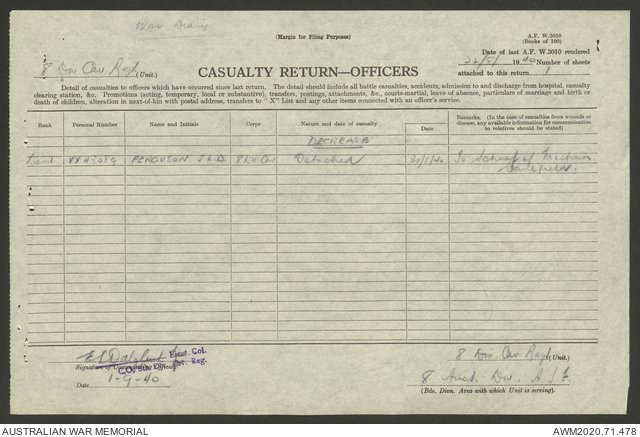 War Diary
(Margin for Filing Purposes)
A.F. W.3010
(Books of 100)
Date of last A.F. W.3010 rendered
22/8/1940 Number of sheets
attached to this return 1
8 Div Cav Regt (Unit.)
CASUALTY RETURN—OFFICERS
Detail of casualties to officers which have occurred since last return. The detail should include all battle casualties, accidents, admission to and discharge from hospital, casualty
clearing station, &c. Promotions (acting, temporary, local or substantive), transfers, postings, attachments, &c., courts-martial, leave of absence, particulars of marriage and birth or
death of children, alteration in next-of-kin with postal address, transfers to "X" List and any other items connected with an officer's service.
Rank Personal Number Name and Initials Corps Nature and date of casualty Date Remarks. (In the case of casualties from wounds or
disease, any available information for communication
to relatives should be stated)
DECREASE
Lieut FERGUSON J.L.D. 8 Div Cav Detached To School of Mechan.
(Unit.)
8 Div Cav Regt
Lieut. Col.
Signature of Commanding Officer
C.O.
Reg.
Date 1-9-40
8 Aust. Div. A.I.F.
(Bde. Divn. Area with which Unit is serving).
AUSTRALIAN WAR MEMORIAL
AWM2020.71.478